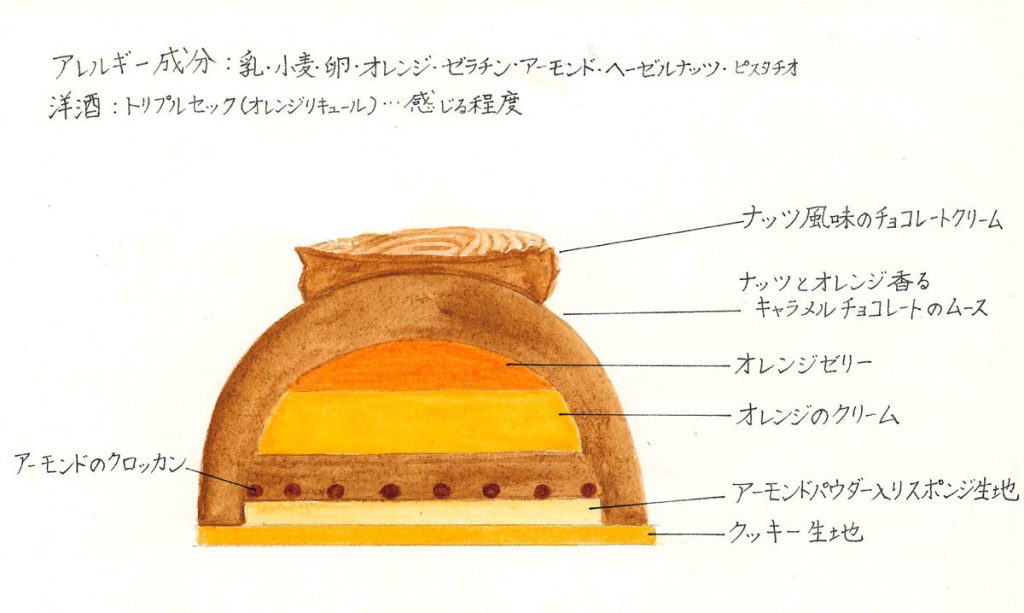 アレルギー成分:乳・小麦・卵・オレンジ・ゼラチン・アーモンド・ヘーゼルナッツ・ピスタチオ
洋酒:トリプルセック(オレンジリキュール)…感じる程度
ナッツ風味のチョコレートクリーム
ナッツとオレンジ香る
キャラメルチョコレートのムース
オレンジゼリー
オレンジのクリーム
アーモンドのクロッカン
アーモンドパウダー入りスポンジ生地
クッキー生地